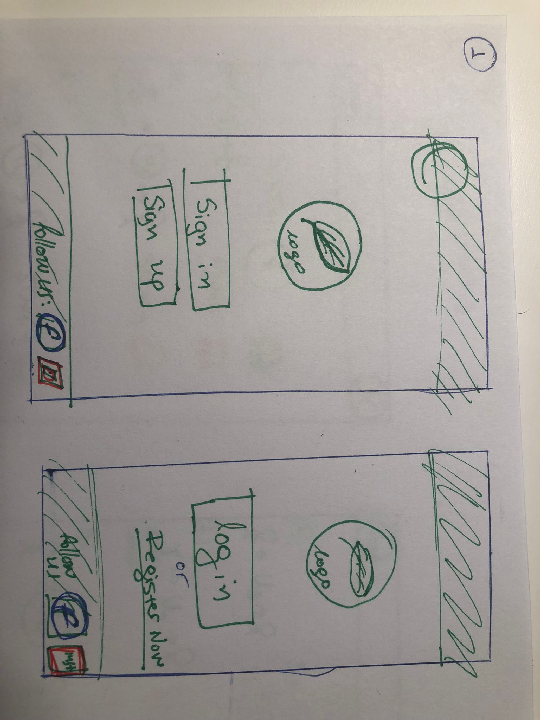 1
Logo
Sign in
Sign up
follow us:
Logo
log in
or
Register Now
follow
us